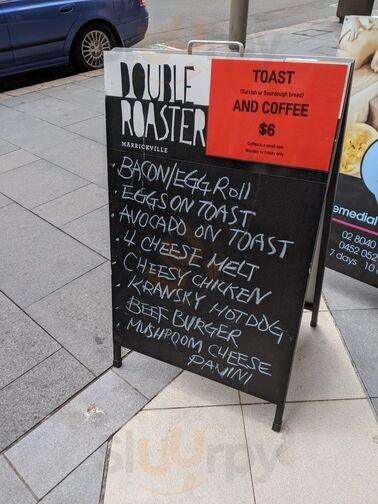 DOUBLE
ROASTER
MARRICKVILLE
TOAST
(Turkish or Sourdough bread)
AND COFFEE
$6
Coffee is a small size
Monday to Friday only
BACON/EGG Roll
EGGS ON TOAST
AVOCADO ON TOAST
4 CHEESE MELT
CHEESY CHICKEN
KRANSKY HOTDOG
BEEF BURGER
MUSHROOM CHEESE
PANINI
emedial
02 8040
0452 052
7 days 10
Sluurpy